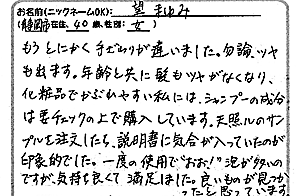 お名前(ニックネームOK): 望 まゆみ
(静岡市在住、40歳、性別: 女)
もうとにかく手ざわりが違いました。勿論、ツヤ
も出ます。年齢と共に髪もツヤがなくなり、
化粧品でかぶれやすい私には、シャンプーの成分
は要チェックの上で購入しています。天照ルのサ
ンプルを注文したら、説明書に気合が入っていたのが
印象的でした。一度の使用で"おお!"泡が多いの
ですが、気持ち良くて満足しました。良いものが見つか
ったと思っています